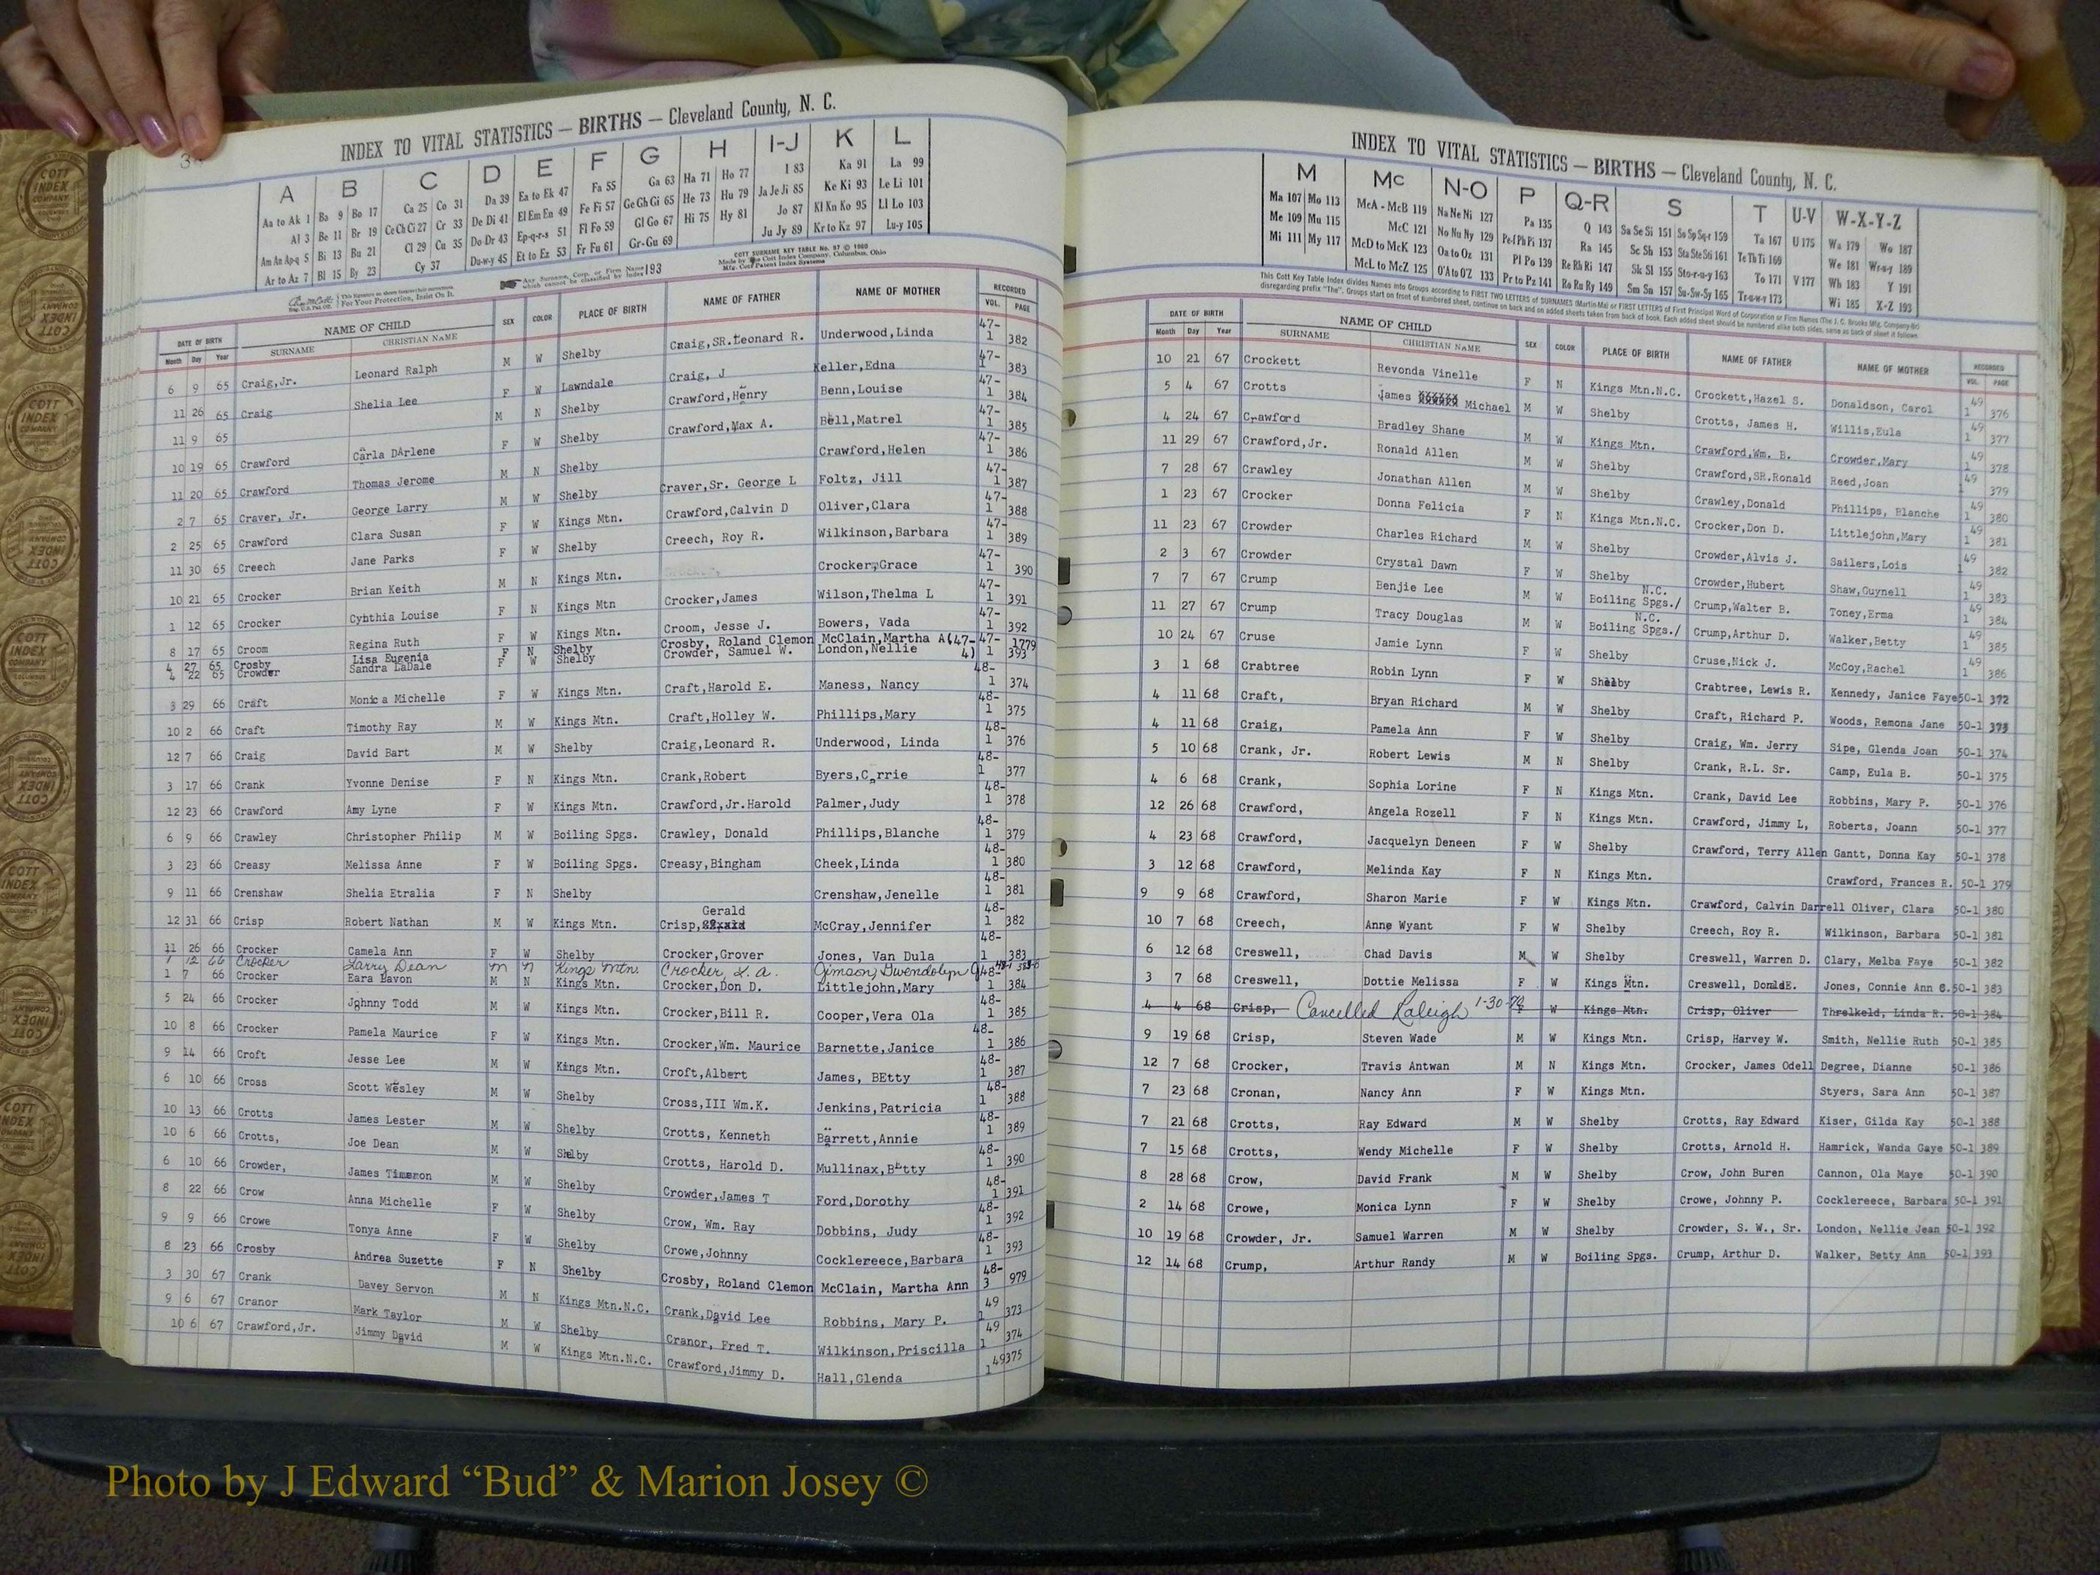 INDEX TO VITAL STATISTICS — BIRTHS — Cleveland County, N. C.
A B C D E F G H I-J K L
Aa to Ak 1 Ba 9 Bo 17 Ca 25 Co 31 Da 39 Ea to Ek 47 Fa 55 Ga 63 Ha 71 Ho 77 I 83 Ka 91 La 99
Al 3 Be 11 Br 19 Ce Ch Ci 27 Cr 33 De Di 41 El Em En 49 Fe Fi 57 Ge Gh Gi 65 He 73 Hu 79 Ja Je Ji 85 Ke Ki 93 Le Li 101
Am An Ap-q 5 Bi 13 Bu 21 Cl 29 Cu 35 Do Dr 43 Ep-q-r-s 51 Fl Fo 59 Gl Go 67 Hi 75 Hy 81 Jo 87 Kl Kn Ko 95 Ll Lo 103
Ar to Az 7 Bl 15 By 23 Cy 37 Du-w-y 45 Et to Ez 53 Fr Fu 61 Gr-Gu 69 Ju Jy 89 Kr to Kz 97 Lu-y 105
Any Surname, Corp. or Firm Name which cannot be classified by index 193
COTT SURNAME KEY TABLE No. 97 © 1960
Made by The Cott Index Company, Columbus, Ohio
For Your Protection, Insist On It.
DATE OF BIRTH NAME OF CHILD SEX COLOR PLACE OF BIRTH NAME OF FATHER NAME OF MOTHER RECORDED
Month Day Year SURNAME CHRISTIAN NAME VOL. PAGE
6 9 65 Craig,Jr. Leonard Ralph M W Shelby Craig,SR.Leonard R. Underwood,Linda 47-1 382
11 26 65 Craig Shelia Lee F W Lawndale Craig, J Keller,Edna 47-1 383
11 9 65 M N Shelby Crawford,Henry Benn,Louise 47-1 384
10 19 65 Crawford Carla DArlene F W Shelby Crawford,Max A. Bell,Matrel 47-1 385
11 20 65 Crawford Thomas Jerome M N Shelby Crawford,Helen 47-1 386
2 7 65 Craver, Jr. George Larry M W Shelby Craver,Sr. George L Foltz, Jill 47-1 387
2 25 65 Crawford Clara Susan F W Kings Mtn. Crawford,Calvin D Oliver,Clara 47-1 388
11 30 65 Creech Jane Parks F W Shelby Creech, Roy R. Wilkinson,Barbara 47-1 389
10 21 65 Crocker Brian Keith M N Kings Mtn. Crocker,Grace 47-1 390
1 12 65 Crocker Cybthia Louise F N Kings Mtn Crocker,James Wilson,Thelma L 47-1 391
8 17 65 Croom Regina Ruth F W Kings Mtn. Croom, Jesse J. Bowers, Vada 47-1 392
4 27 65 Crosby Lisa Eugenia F N Shelby Crosby, Roland Clemon McClain,Martha A(47-4) 1779
4 22 65 Crowder Sandra LaDale F W Shelby Crowder, Samuel W. London,Nellie 47-1 393
3 29 66 Craft Monica Michelle F W Kings Mtn. Craft,Harold E. Maness, Nancy 48-1 374
10 2 66 Craft Timothy Ray M W Kings Mtn. Craft,Holley W. Phillips,Mary 48-1 375
12 7 66 Craig David Bart M W Shelby Craig,Leonard R. Underwood, Linda 48-1 376
3 17 66 Crank Yvonne Denise F N Kings Mtn. Crank,Robert Byers,C rrie 48-1 377
12 23 66 Crawford Amy Lyne F W Kings Mtn. Crawford,Jr.Harold Palmer,Judy 48-1 378
6 9 66 Crawley Christopher Philip M W Boiling Spgs. Crawley, Donald Phillips,Blanche 48-1 379
3 23 66 Creasy Melissa Anne F W Boiling Spgs. Creasy,Bingham Cheek,Linda 48-1 380
9 11 66 Crenshaw Shelia Etralia F N Shelby Crenshaw,Jenelle 48-1 381
12 31 66 Crisp Robert Nathan M W Kings Mtn. Crisp, Gerald McCray,Jennifer 48-1 382
11 26 66 Crocker Camela Ann F W Shelby Crocker,Grover Jones, Van Dula 48-1 383
1 12 66 Crocker Larry Dean M N Kings Mtn. Crocker, L. A. Jimson, Gwendolyn
1 7 66 Crocker Eara Davon M N Kings Mtn. Crocker,Don D. Littlejohn,Mary 48-1 384
5 24 66 Crocker Johnny Todd M W Kings Mtn. Crocker,Bill R. Cooper,Vera Ola 48-1 385
10 8 66 Crocker Pamela Maurice F W Kings Mtn. Crocker,Wm. Maurice Barnette,Janice 48-1 386
9 14 66 Croft Jesse Lee M W Kings Mtn. Croft,Albert James, BEtty 48-1 387
6 10 66 Cross Scott Wesley M W Shelby Cross,III Wm.K. Jenkins,Patricia 48-1 388
10 13 66 Crotts James Lester M W Shelby Crotts, Kenneth Barrett,Annie 48-1 389
10 6 66 Crotts, Joe Dean M W Shelby Crotts, Harold D. Mullinax,Betty 48-1 390
6 10 66 Crowder, James Timeron M W Shelby Crowder,James T Ford,Dorothy 48-1 391
8 22 66 Crow Anna Michelle F W Shelby Crow, Wm. Ray Dobbins, Judy 48-1 392
9 9 66 Crowe Tonya Anne F W Shelby Crowe,Johnny Cocklereece,Barbara 48-1 393
8 23 66 Crosby Andrea Suzette F N Shelby Crosby, Roland Clemon McClain, Martha Ann 48-3 979
3 30 67 Crank Davey Servon M N Kings Mtn.N.C. Crank,David Lee Robbins, Mary P. 49 1 373
9 6 67 Cranor Mark Taylor M W Shelby Cranor, Fred T. Wilkinson,Priscilla 49 1 374
10 6 67 Crawford,Jr. Jimmy David M W Kings Mtn.N.C. Crawford,Jimmy D. Hall,Glenda 49 1 375
INDEX TO VITAL STATISTICS — BIRTHS — Cleveland County, N. C.
M Mc N-O P Q-R S T U-V W-X-Y-Z
Ma 107 Mo 113 McA - McB 119 Na Ne Ni 127 Pa 135 Q 143 Sa Se Si 151 So Sp Sq-r 159 Ta 167 U 175 Wa 179 Wo 187
Me 109 Mu 115 McC 121 No Nu Ny 129 Pe-f Ph Pi 137 Ra 145 Sc Sh 153 Sta Ste Sti 161 Te Th Ti 169 We 181 Wr-u-y 189
Mi 111 My 117 McD to McK 123 Oa to Oz 131 Pl Po 139 Re Rh Ri 147 Sk Sl 155 Sto-r-u-y 163 To 171 V 177 Wh 183 Y 191
McL to McZ 125 O'A to O'Z 133 Pr to Pz 141 Ro Ru Ry 149 Sm Sn 157 Su-Sw-Sy 165 Tr-u-w-y 173 Wi 185 X-Z 193
This Cott Key Table Index divides Names into Groups according to FIRST TWO LETTERS of SURNAMES (Martin-Ma) or FIRST LETTERS of First Principal Word of Corporation or Firm Names
disregarding prefix "The". Groups start on front of numbered sheet, continue on back and on added sheets taken from back of book. Each added sheet should be numbered alike both sides, same as back of sheet it follows.
DATE OF BIRTH NAME OF CHILD SEX COLOR PLACE OF BIRTH NAME OF FATHER NAME OF MOTHER RECORDED
Month Day Year SURNAME CHRISTIAN NAME VOL. PAGE
10 21 67 Crockett Revonda Vinelle F N Kings Mtn.N.C. Crockett,Hazel S. Donaldson, Carol 49 1 376
5 4 67 Crotts James Michael M W Shelby Crotts, James H. Willis,Eula 49 1 377
4 24 67 Crawford Bradley Shane M W Kings Mtn. Crawford,Wm. B. Crowder,Mary 49 1 378
11 29 67 Crawford,Jr. Ronald Allen M W Shelby Crawford,SR.Ronald Reed,Joan 49 1 379
7 28 67 Crawley Jonathan Allen M W Shelby Crawley,Donald Phillips, Blanche 49 1 380
1 23 67 Crocker Donna Felicia F N Kings Mtn.N.C. Crocker,Don D. Littlejohn,Mary 49 1 381
11 23 67 Crowder Charles Richard M W Shelby Crowder,Alvis J. Sailers,Lois 49 1 382
2 3 67 Crowder Crystal Dawn F W Shelby Crowder,Hubert Shaw,Guynell 49 1 383
7 7 67 Crump Benjie Lee M W Boiling Spgs./N.C. Crump,Walter B. Toney,Erma 49 1 384
11 27 67 Crump Tracy Douglas M W Boiling Spgs./N.C. Crump,Arthur D. Walker,Betty 49 1 385
10 24 67 Cruse Jamie Lynn F W Shelby Cruse,Nick J. McCoy,Rachel 49 1 386
3 1 68 Crabtree Robin Lynn F W Shelby Crabtree, Lewis R. Kennedy, Janice Faye 50-1 372
4 11 68 Craft, Bryan Richard M W Shelby Craft, Richard P. Woods, Remona Jane 50-1 373
4 11 68 Craig, Pamela Ann F W Shelby Craig, Wm. Jerry Sipe, Glenda Joan 50-1 374
5 10 68 Crank, Jr. Robert Lewis M N Shelby Crank, R.L. Sr. Camp, Eula B. 50-1 375
4 6 68 Crank, Sophia Lorine F N Kings Mtn. Crank, David Lee Robbins, Mary P. 50-1 376
12 26 68 Crawford, Angela Rozell F N Kings Mtn. Crawford, Jimmy L, Roberts, Joann 50-1 377
4 23 68 Crawford, Jacquelyn Deneen F W Shelby Crawford, Terry Allen Gantt, Donna Kay 50-1 378
3 12 68 Crawford, Melinda Kay F N Kings Mtn. Crawford, Frances R. 50-1 379
9 9 68 Crawford, Sharon Marie F W Kings Mtn. Crawford, Calvin Darrell Oliver, Clara 50-1 380
10 7 68 Creech, Anne Wyant F W Shelby Creech, Roy R. Wilkinson, Barbara 50-1 381
6 12 68 Creswell, Chad Davis M W Shelby Creswell, Warren D. Clary, Melba Faye 50-1 382
3 7 68 Creswell, Dottie Melissa F W Kings Mtn. Creswell, DonaldE. Jones, Connie Ann C. 50-1 383
4 4 68 Crisp, Cancelled Raleigh 1-30-70 F W Kings Mtn. Crisp, Oliver Threlkeld, Linda R. 50-1 384
9 19 68 Crisp, Steven Wade M W Kings Mtn. Crisp, Harvey W. Smith, Nellie Ruth 50-1 385
12 7 68 Crocker, Travis Antwan M N Kings Mtn. Crocker, James Odell Degree, Dianne 50-1 386
7 23 68 Cronan, Nancy Ann F W Kings Mtn. Styers, Sara Ann 50-1 387
7 21 68 Crotts, Ray Edward M W Shelby Crotts, Ray Edward Kiser, Gilda Kay 50-1 388
7 15 68 Crotts, Wendy Michelle F W Shelby Crotts, Arnold H. Hamrick, Wanda Gaye 50-1 389
8 28 68 Crow, David Frank M W Shelby Crow, John Buren Cannon, Ola Maye 50-1 390
2 14 68 Crowe, Monica Lynn F W Shelby Crowe, Johnny P. Cocklereece, Barbara 50-1 391
10 19 68 Crowder, Jr. Samuel Warren M W Shelby Crowder, S. W., Sr. London, Nellie Jean 50-1 392
12 14 68 Crump, Arthur Randy M W Boiling Spgs. Crump, Arthur D. Walker, Betty Ann 50-1 393
Photo by J Edward “Bud” & Marion Josey ©